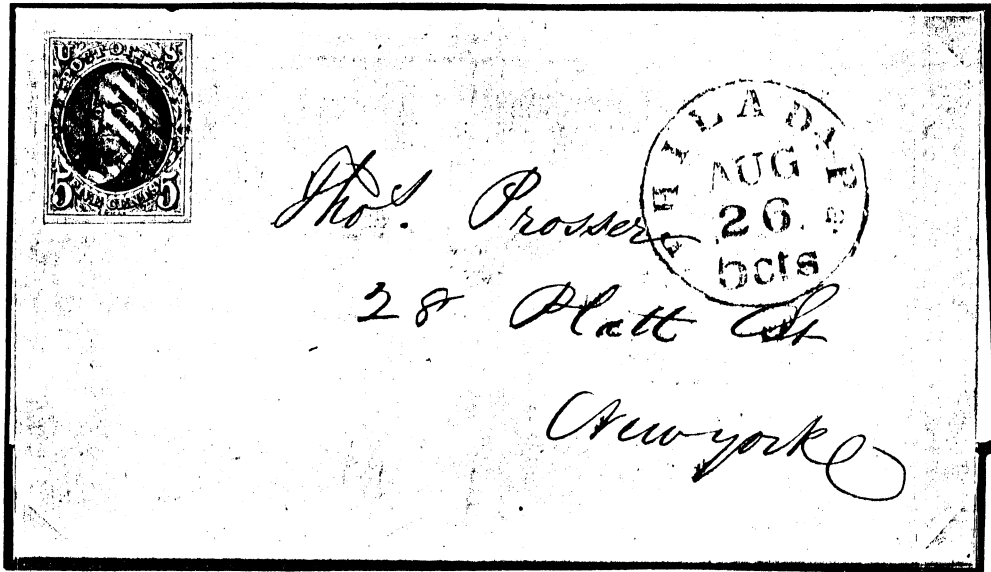 U S
POST OFFICE
5 FIVE CENTS 5
PHILADA Pa
AUG
26
5cts
Thos. Prosser
28 Platt St
Newyork